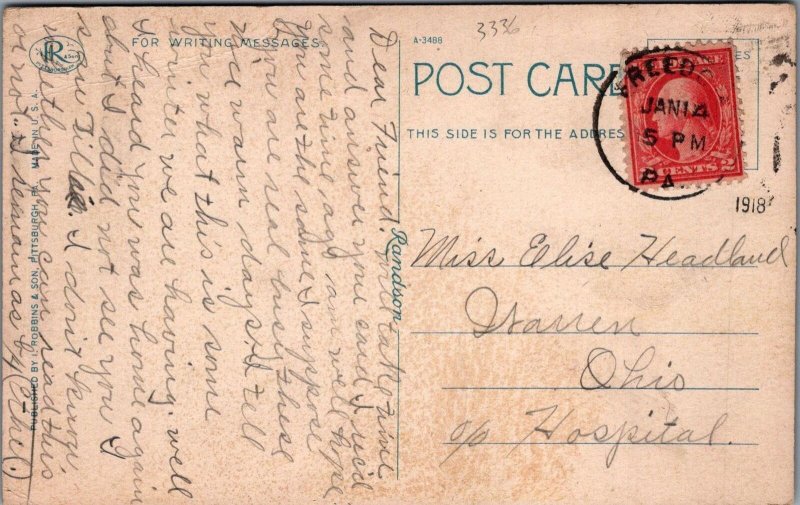 3336
A-3488
FOR WRITING MESSAGES
POST CARD
THIS SIDE IS FOR THE ADDRES
FREEDO
JAN 14
5 PM
PA.
1918
2 CENTS 2
Miss Elise Headland
Warren
Ohio
c/o Hospital.
Dear Friend, Will take time
and answer your card I rec'd
some time ago. I am well hope
you are the same I suppose
you are real busy these
warm days. I tell
you what this is some
winter we are having. well
I heard you was home again
but I did not see you I
I don't know
whether you can read this
or not. I remain as by
Randson
PUBLISHED BY I. ROBBINS & SON, PITTSBURGH, PA. MADE IN U. S. A.